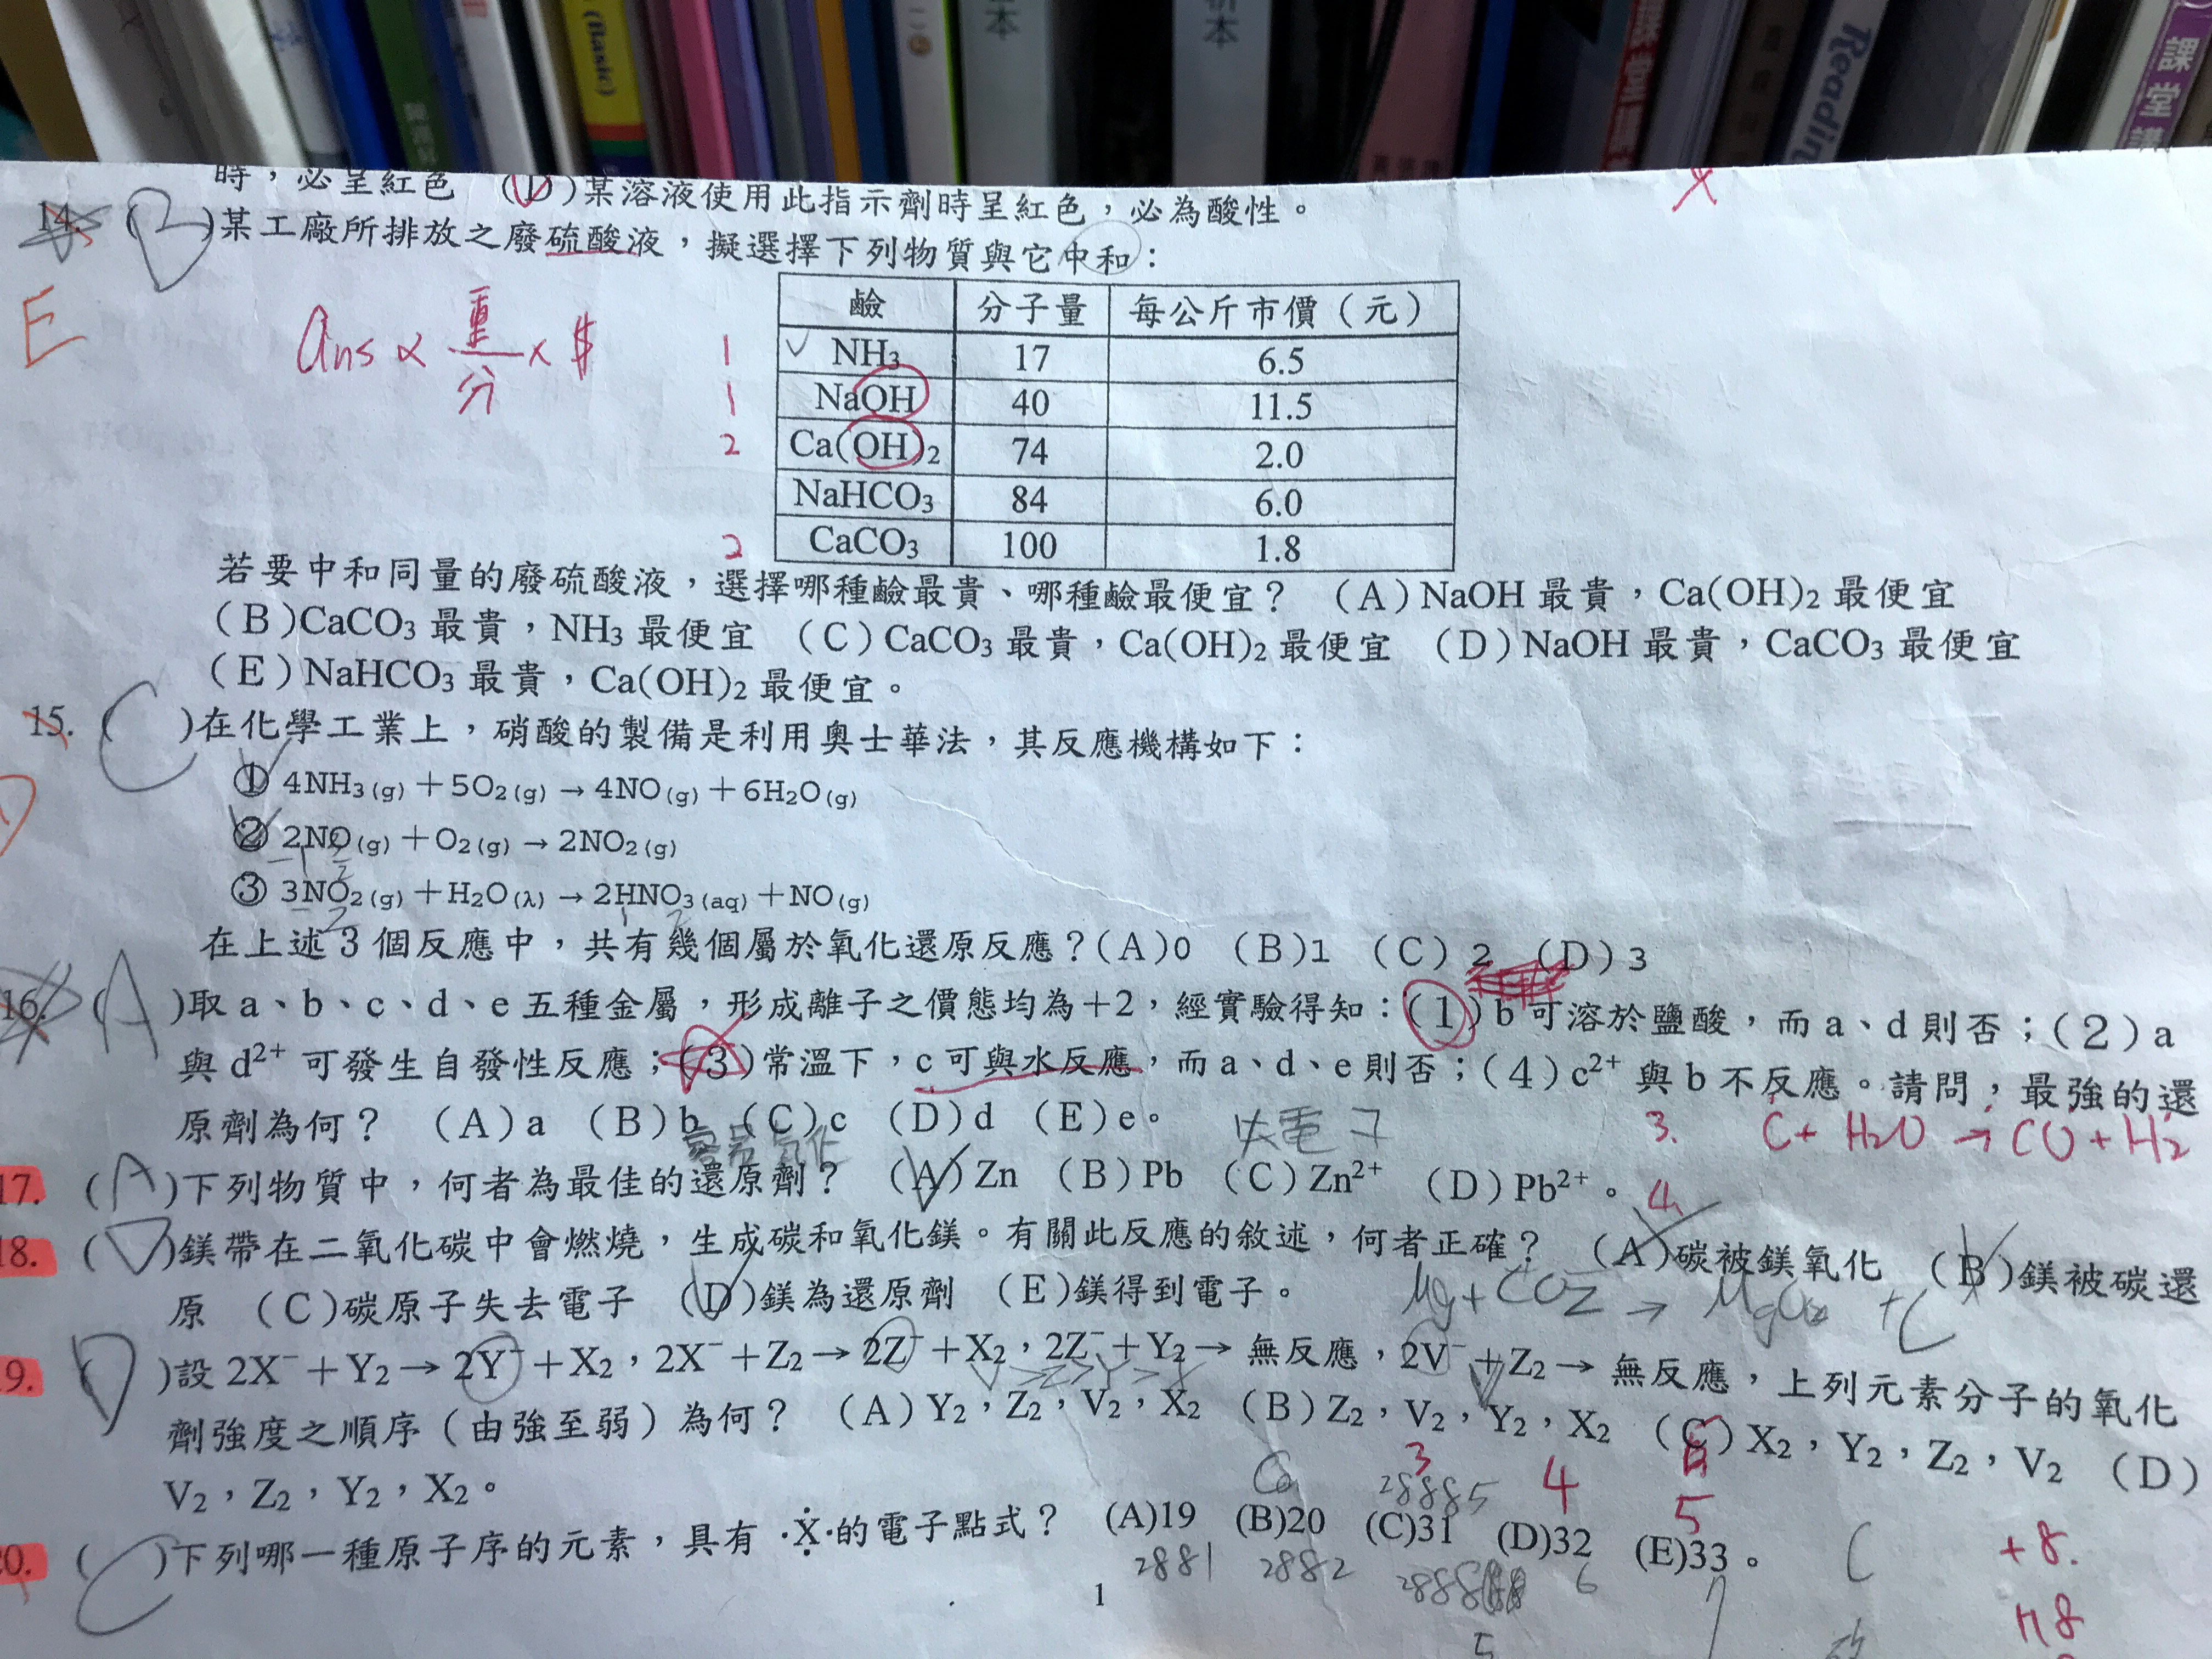 本
析本
(Basic)
Reading
課堂講
時，必呈紅色 (D)某溶液使用此指示劑時呈紅色，必為酸性。
14. ( B )某工廠所排放之廢硫酸液，擬選擇下列物質與它中和：
E
Ans ∝ 重/分 × $
鹼 分子量 每公斤市價（元）
1 ✓ NH₃ 17 6.5
1 NaOH 40 11.5
2 Ca(OH)₂ 74 2.0
NaHCO₃ 84 6.0
2 CaCO₃ 100 1.8
若要中和同量的廢硫酸液，選擇哪種鹼最貴、哪種鹼最便宜？ (A)NaOH 最貴，Ca(OH)₂ 最便宜
(B)CaCO₃ 最貴，NH₃ 最便宜 (C)CaCO₃ 最貴，Ca(OH)₂ 最便宜 (D)NaOH 最貴，CaCO₃ 最便宜
(E)NaHCO₃ 最貴，Ca(OH)₂ 最便宜。
15. ( C )在化學工業上，硝酸的製備是利用奧士華法，其反應機構如下：
① 4NH₃(g)＋5O₂(g)→4NO(g)＋6H₂O(g)
② 2NO(g)＋O₂(g)→2NO₂(g)
③ 3NO₂(g)＋H₂O(λ)→2HNO₃(aq)＋NO(g)
在上述 3 個反應中，共有幾個屬於氧化還原反應？(A)0 (B)1 (C) 2 (D)3
16. ( A )取 a、b、c、d、e 五種金屬，形成離子之價態均為＋2，經實驗得知：(1)b 可溶於鹽酸，而 a、d 則否；(2)a
與 d²⁺ 可發生自發性反應；(3)常溫下，c 可與水反應，而 a、d、e 則否；(4)c²⁺ 與 b 不反應。請問，最強的還
原劑為何？ (A)a (B)b (C)c (D)d (E)e。
失電子
3. C + H₂O → CO + H₂
容易氧化
17. ( A )下列物質中，何者為最佳的還原劑？ (A)Zn (B)Pb (C)Zn²⁺ (D)Pb²⁺。
4.
18. ( D )鎂帶在二氧化碳中會燃燒，生成碳和氧化鎂。有關此反應的敘述，何者正確？ (A)碳被鎂氧化 (B)鎂被碳還
原 (C)碳原子失去電子 (D)鎂為還原劑 (E)鎂得到電子。
Mg + CO₂ → MgO₂ + C
19. ( D )設 2X⁻＋Y₂→2Y⁻＋X₂，2X⁻＋Z₂→2Z⁻＋X₂，2Z⁻＋Y₂→ 無反應，2V⁻＋Z₂→ 無反應，上列元素分子的氧化
V > Z > Y > X
劑強度之順序（由強至弱）為何？ (A)Y₂，Z₂，V₂，X₂ (B)Z₂，V₂，Y₂，X₂ (C)X₂，Y₂，Z₂，V₂ (D)
V₂，Z₂，Y₂，X₂。
28885
3 4 5
20. ( C )下列哪一種原子序的元素，具有 ·Ẋ̣· 的電子點式？ (A)19 (B)20 (C)31 (D)32 (E)33。
2881 2882 2888 6 7
C
+8.
+18
5
1